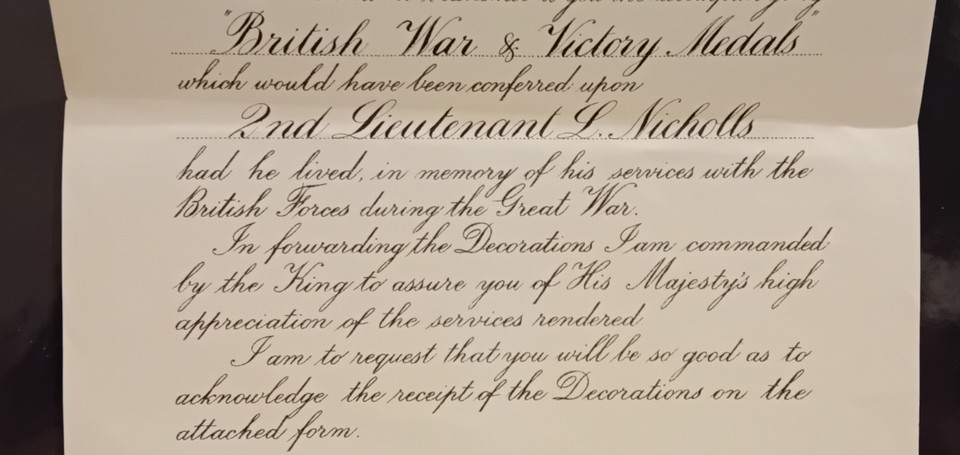 to you the accompanying
"British War & Victory Medals"
which would have been conferred upon
2nd Lieutenant L. Nicholls
had he lived, in memory of his services with the
British Forces during the Great War.
In forwarding the Decorations I am commanded
by the King to assure you of His Majesty's high
appreciation of the services rendered
I am to request that you will be so good as to
acknowledge the receipt of the Decorations on the
attached form.